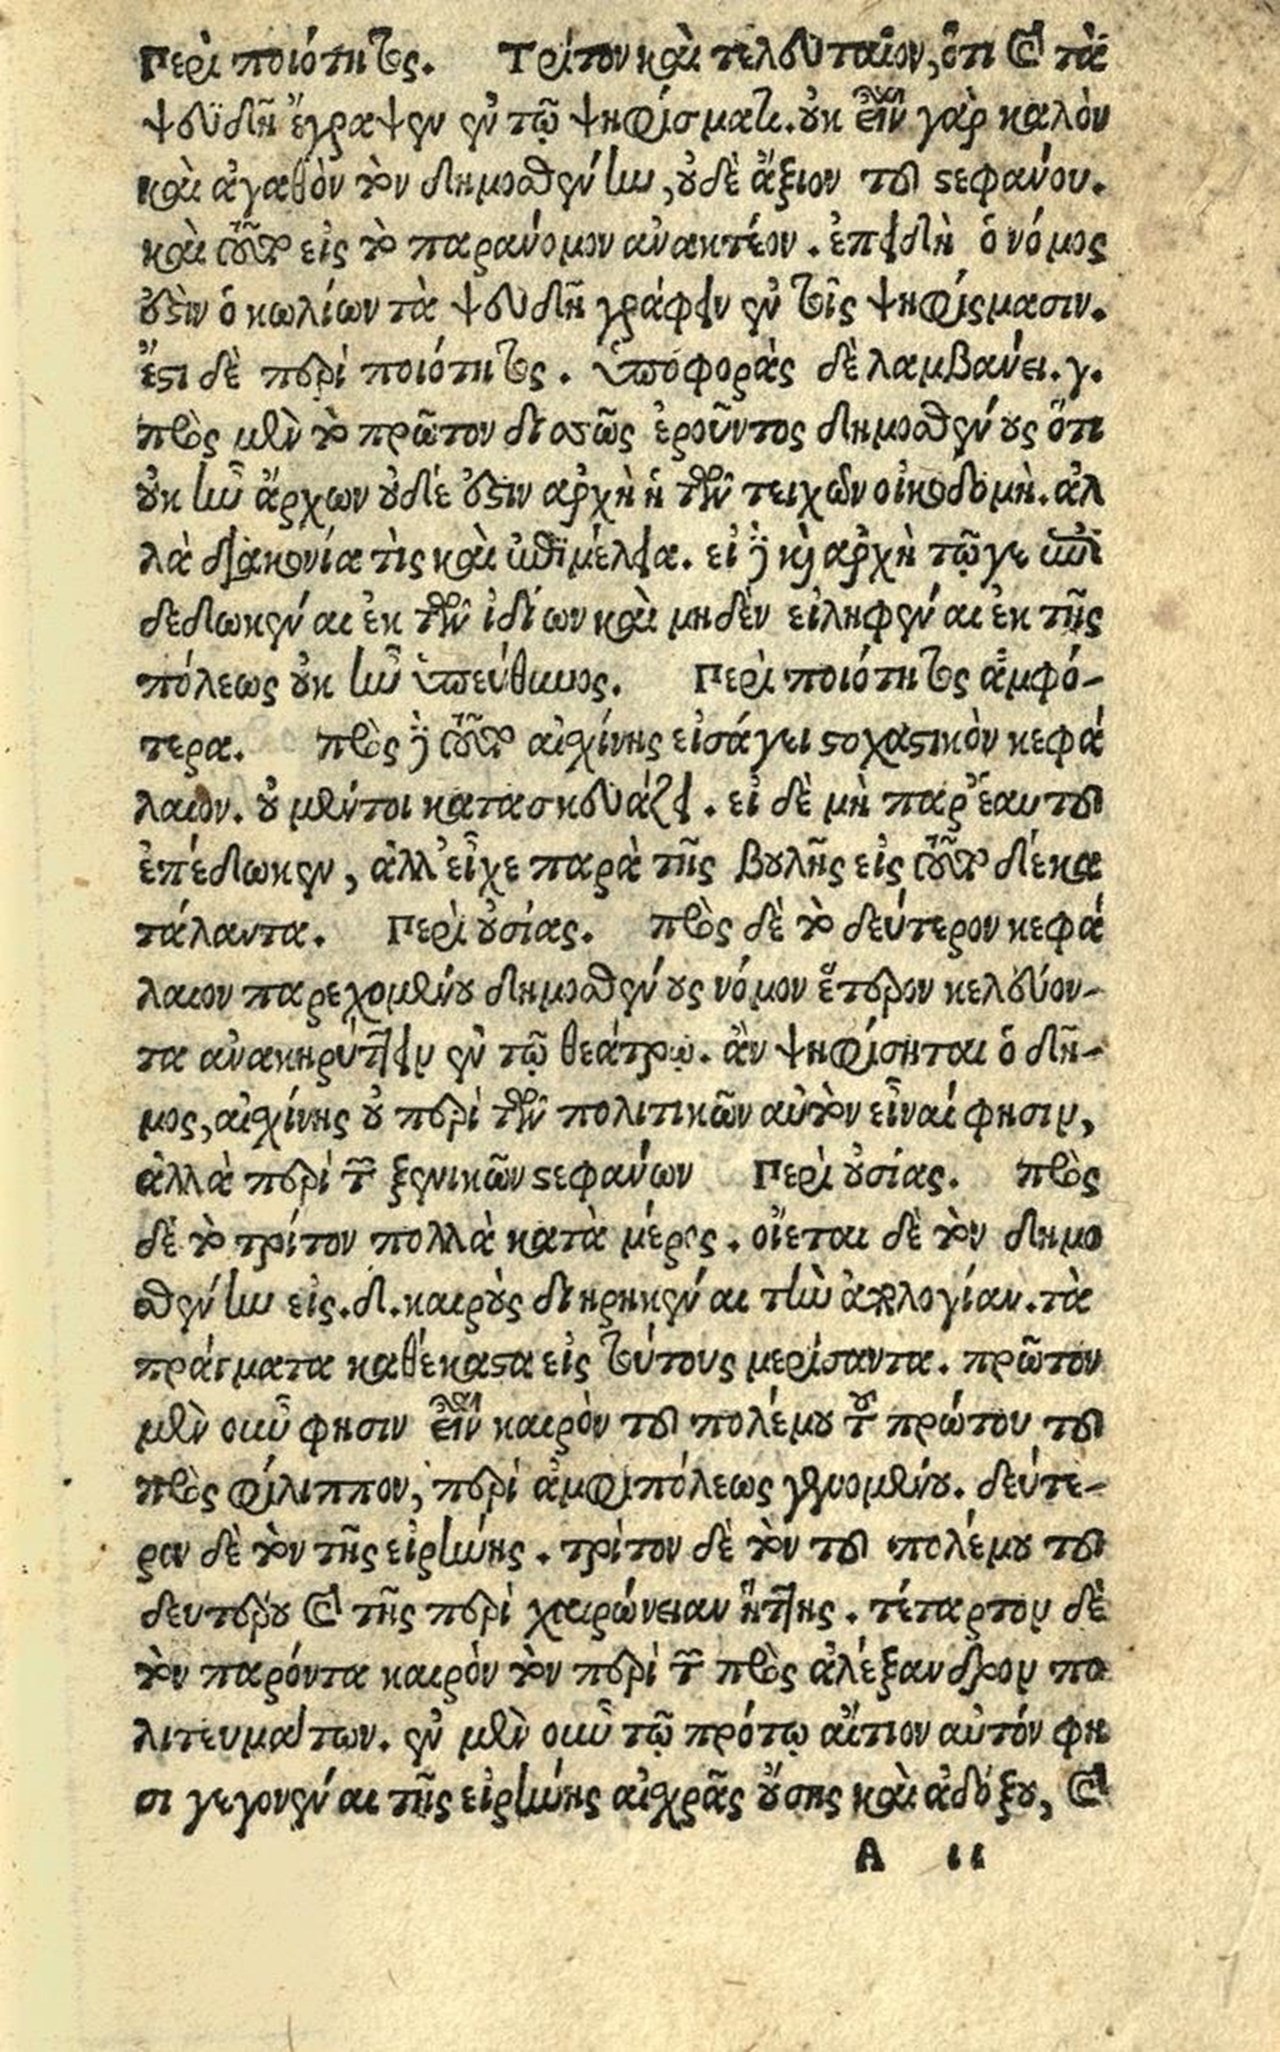 Περὶ ποιότητος. Τρίτον καὶ τελευταῖον, ὅτι καὶ τὰ
ψευδῆ ἔγραψεν ἐν τῷ ψηφίσματι. οὐκ εἶναι γὰρ καλὸν
καὶ ἀγαθὸν τὸν δημοσθένην, οὐδὲ ἄξιον τοῦ στεφάνου.
καὶ τοῦτο εἰς τὸ παράνομον ἀνακτέον. ἐπειδὴ ὁ νόμος
ἐστὶν ὁ κωλύων τὰ ψευδῆ γράφειν ἐν τοῖς ψηφίσμασιν.
ἔστι δὲ περὶ ποιότητος. ὑποφορὰς δὲ λαμβάνει. γ.
πρὸς μὲν τὸ πρῶτον δισσῶς ἐροῦντος δημοσθένους ὅτι
οὐκ ἦν ἄρχων οὐδέ ἐστιν ἀρχὴ ἡ τῶν τειχῶν οἰκοδομὴ. ἀλ
λὰ διακονία τὶς καὶ ἐπιμέλεια. εἰ δὲ καὶ ἀρχὴ τῷ γε ἐπι
δεδωκέναι ἐκ τῶν ἰδίων καὶ μηδὲν εἰληφέναι ἐκ τῆς
πόλεως οὐκ ἦν ὑπεύθυνος. Περὶ ποιότητος ἀμφό-
τερα. πρὸς δὲ τοῦτο αἰσχίνης εἰσάγει στοχαστικὸν κεφά
λαιον. οὐ μέντοι κατασκευάζει. εἰ δὲ μὴ παρ' ἑαυτοῦ
ἐπέδωκεν, ἀλλ' εἶχε παρὰ τῆς βουλῆς εἰς τοῦτο δέκα
τάλαντα. Περὶ οὐσίας. πρὸς δὲ τὸ δεύτερον κεφά
λαιον παρεχομένου δημοσθένους νόμον ἕτερον κελεύον-
τα ἀνακηρύττειν ἐν τῷ θεάτρῳ. ἂν ψηφίσηται ὁ δῆ-
μος, αἰσχίνης οὐ περὶ τῶν πολιτικῶν αὐτὸν εἶναί φησιν,
ἀλλὰ περὶ τῶν ξενικῶν στεφάνων Περὶ οὐσίας. πρὸς
δὲ τὸ τρίτον πολλὰ κατὰ μέρος. οἴεται δὲ τὸν δημο
σθένην εἰς. δ. καιροὺς διῃρηκέναι τὴν ἀπολογίαν. τὰ
πράγματα καθέκαστα εἰς τούτους μερίσαντα. πρῶτον
μὲν οὖν φησιν εἶναι καιρὸν τοῦ πολέμου τοῦ πρώτου τοῦ
πρὸς φίλιππον, περὶ ἀμφιπόλεως γενομένου. δεύτε-
ρον δὲ τὸν τῆς εἰρήνης. τρίτον δὲ τὸν τοῦ πολέμου τοῦ
δευτέρου καὶ τῆς περὶ χαιρώνειαν ἥττης. τέταρτον δὲ
τὸν παρόντα καιρὸν τὸν περὶ τῶν πρὸς ἀλέξανδρον πο
λιτευμάτων. ἐν μὲν οὖν τῷ πρότῳ αἴτιον αὐτόν φη
σι γεγονέναι τῆς εἰρήνης αἰσχρᾶς οὔσης καὶ ἀδόξου, καὶ
A ιι